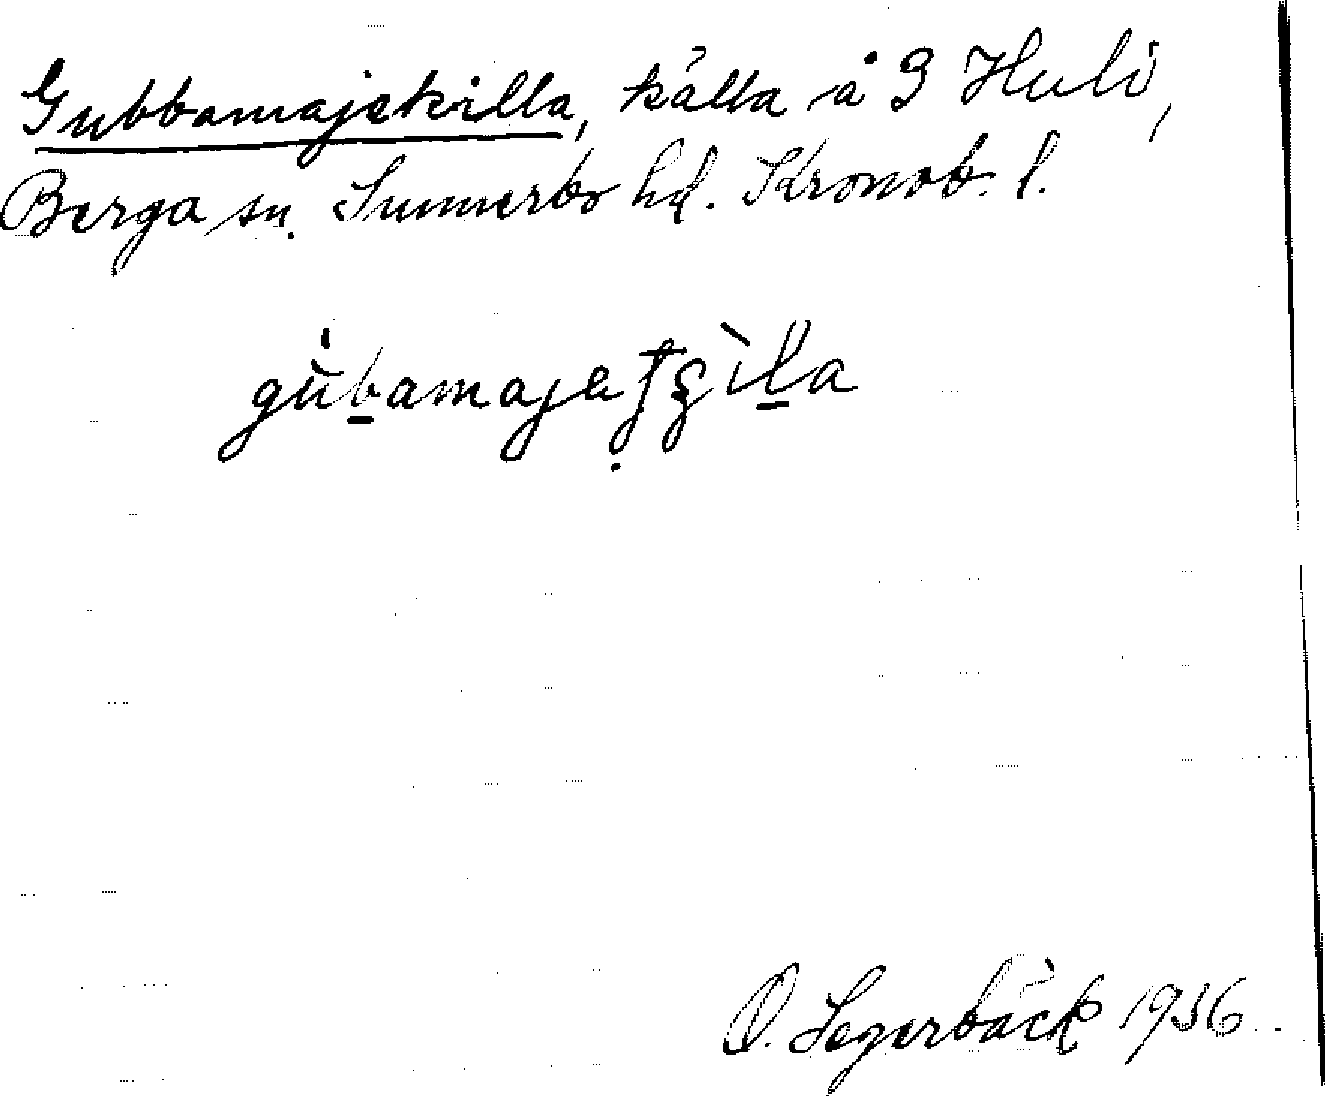 Gubbamajekilla, källa å S Huli,
Berga sn. Sunnerbo hd. Kronob. l.
gùbamajaʃʒìla
O. Segerbäck 1936